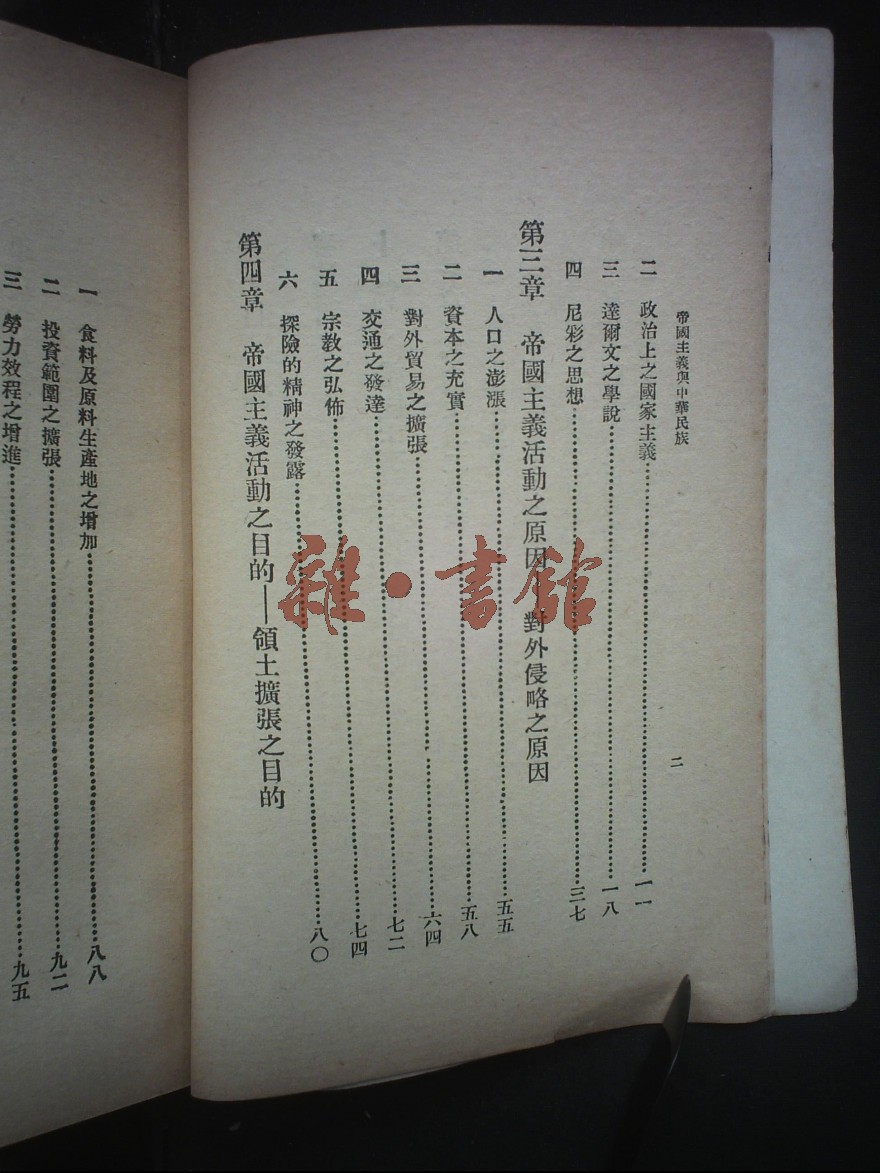 帝國主義與中華民族
二
二 政治上之國家主義……一一
三 達爾文之學說……一八
四 尼彩之思想……三七
第三章 帝國主義活動之原因—對外侵略之原因
一 人口之澎漲……五五
二 資本之充實……五八
三 對外貿易之擴張……六四
四 交通之發達……七二
五 宗教之弘佈……七四
六 探險的精神之發露……八〇
第四章 帝國主義活動之目的—領土擴張之目的
一 食料及原料生產地之增加……八八
二 投資範圍之擴張……九二
三 勞力效程之增進……九五
雜·書館